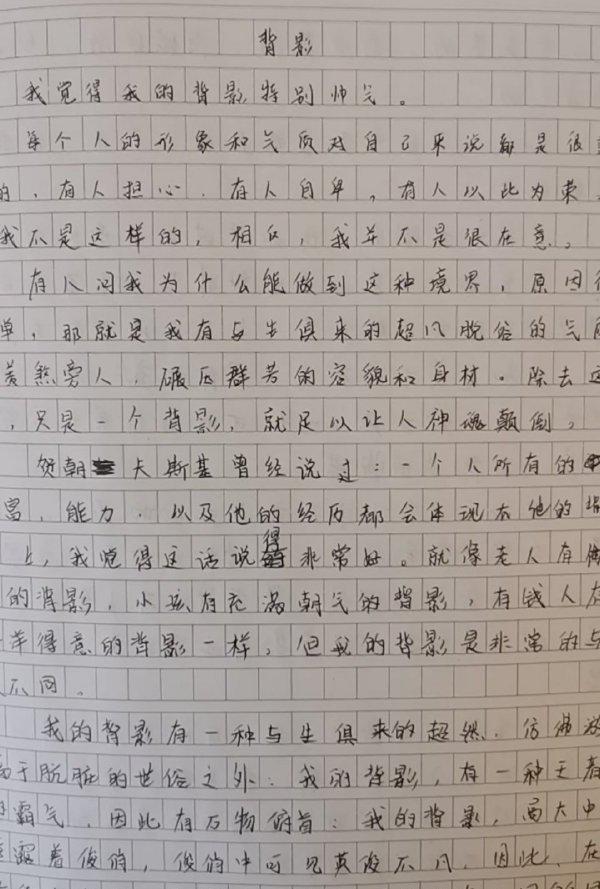 背影
我觉得我的背影特别帅气。
每个人的形象和气质对自己来说都是很
的，有人担心，有人自卑，有人以此为荣，
我不是这样的，相反，我并不是很在意，
有人问我为什么能做到这种境界，原因很
单，那就是我有与生俱来的超凡脱俗的气质
羡煞旁人，碾压群芳的容貌和身材。除去这
，只是一个背影，就足以让人神魂颠倒，
贺朝夫斯基曾经说过：一个人所有的
富，能力，以及他的经历都会体现在他的背
上，我觉得这话说得非常好。就像老人有
的背影，小孩有充满朝气的背影，有钱人有
洋得意的背影一样，但我的背影是非常的与
不同。
我的背影有一种与生俱来的超然，仿佛游
离于肮脏的世俗之外：我的背影，有一种王者
霸气，因此有万物俯首：我的背影，高大中
透露着俊俏，俊俏中可见英俊不凡，因此，在